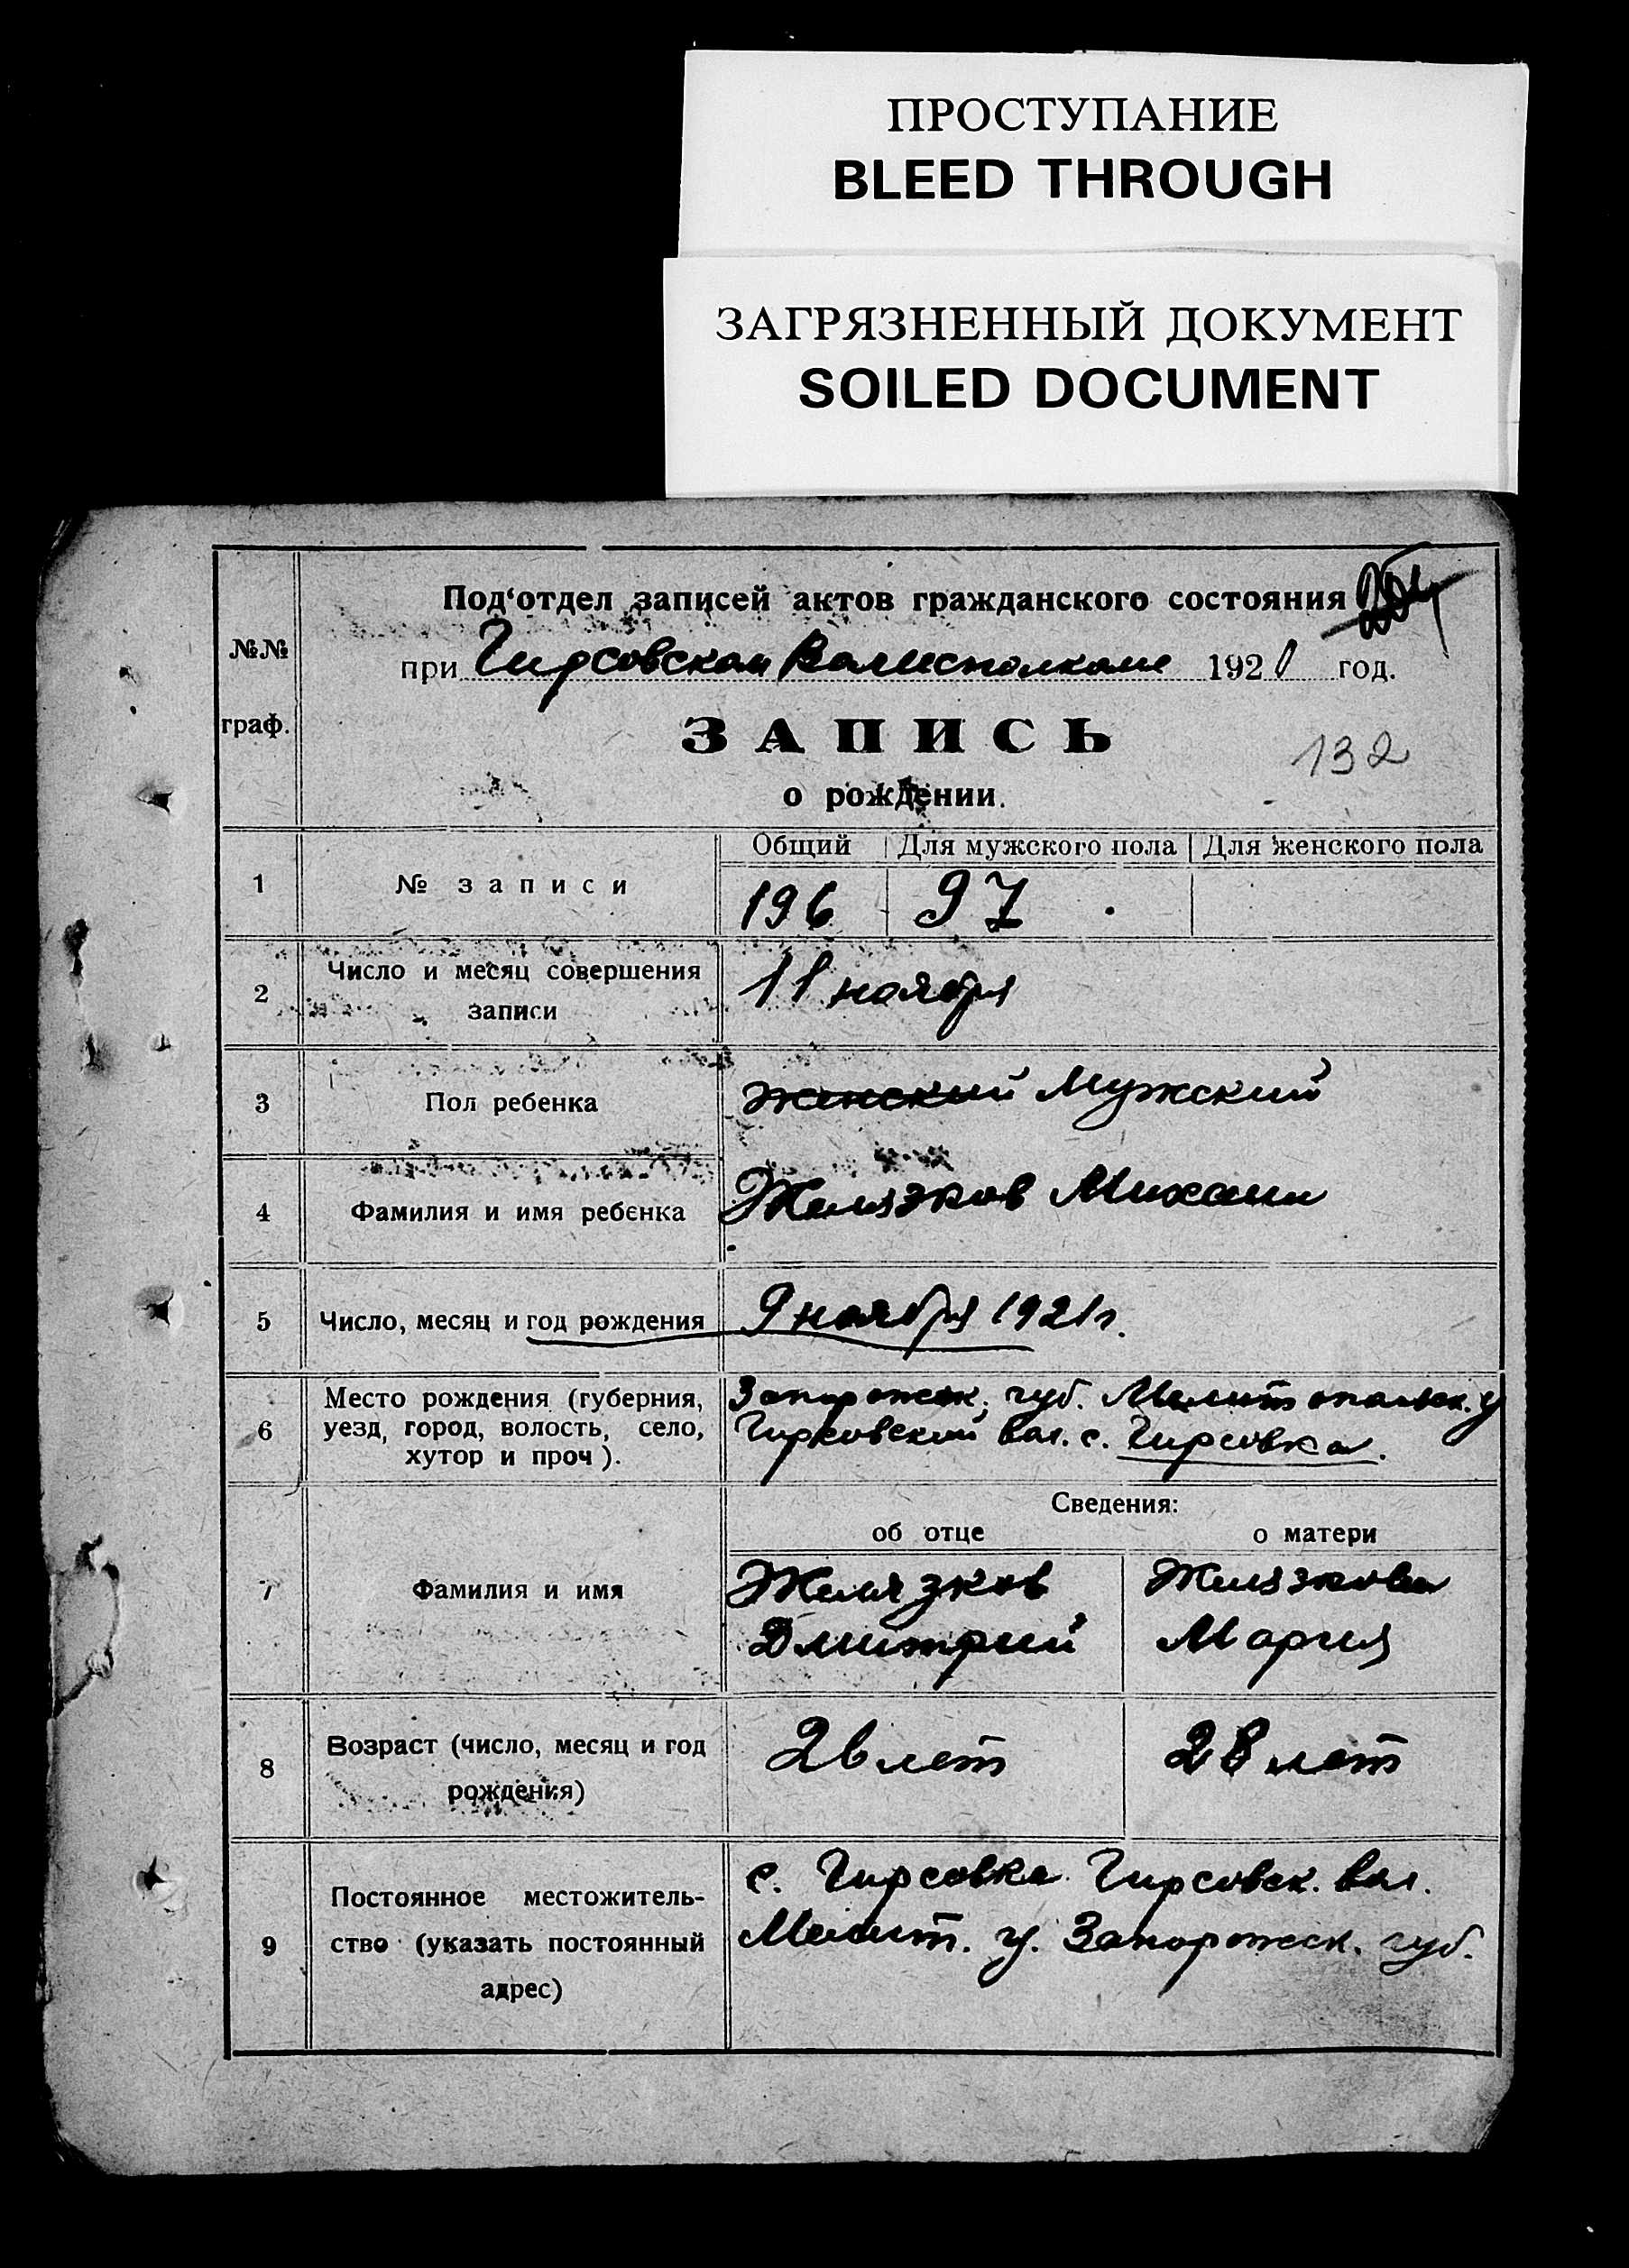 ПРОСТУПАНИЕ
BLEED THROUGH
ЗАГРЯЗНЕННЫЙ ДОКУМЕНТ
SOILED DOCUMENT
№№
граф.
Под‘отдел записей актов гражданского состояния
при Гирсовском Волисполкоме 1921 год.
ЗАПИСЬ
132
о рождении.
Общий Для мужского пола Для женского пола
1 № записи 196 97
2 Число и месяц совершения записи 11 ноября
3 Пол ребенка женский Мужский
4 Фамилия и имя ребенка Желязков Михаил
5 Число, месяц и год рождения 9 ноября 1921 г.
6 Место рождения (губерния, Запорожск. губ. Мелитопольск. у
уезд, город, волость, село, Гирсовский вол. с. Гирсовка.
хутор и проч).
Сведения:
об отце о матери
7 Фамилия и имя Желязков Желязкова
Дмитрий Мария
8 Возраст (число, месяц и год 26 лет 28 лет
рождения)
с. Гирсовка Гирсовск. вол.
Постоянное местожитель-
9 ство (указать постоянный Мелит. у. Запорожск. губ.
адрес)